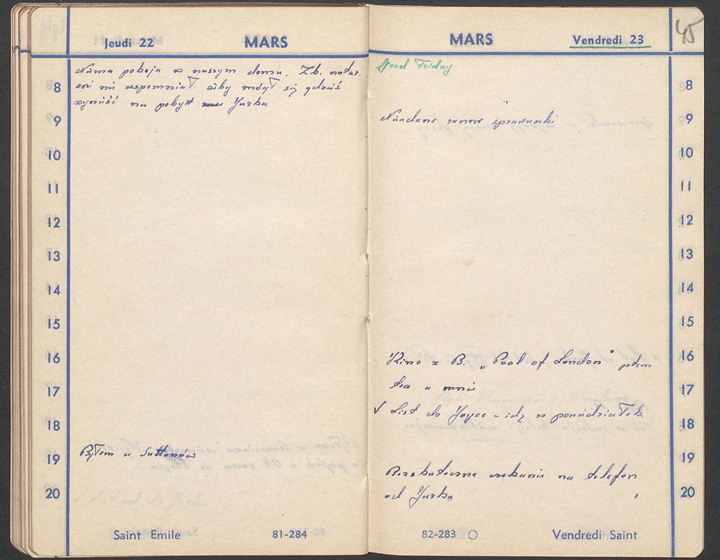 Jeudi 22
MARS
8
Niema pokoju w naszym domu. Zb. natar.
ani nie wspomniał żeby mógł się gdzieś
wynieść na pobyt Jurka
9
10
11
12
13
14
15
16
17
18
19
Byłem u Suttonów
20
Saint Emile
81-284
MARS
Vendredi 23
45
Good Friday
8
Nieudane ranne sprawunki
9
10
11
12
13
14
15
Kino z B. „Pool of London" potem
16
tea u mnie
17
√ List do Joyce - idę w poniedziałek
18
19
Bezskuteczne czekanie na telefon
od Jurka
20
82-283
Vendredi Saint